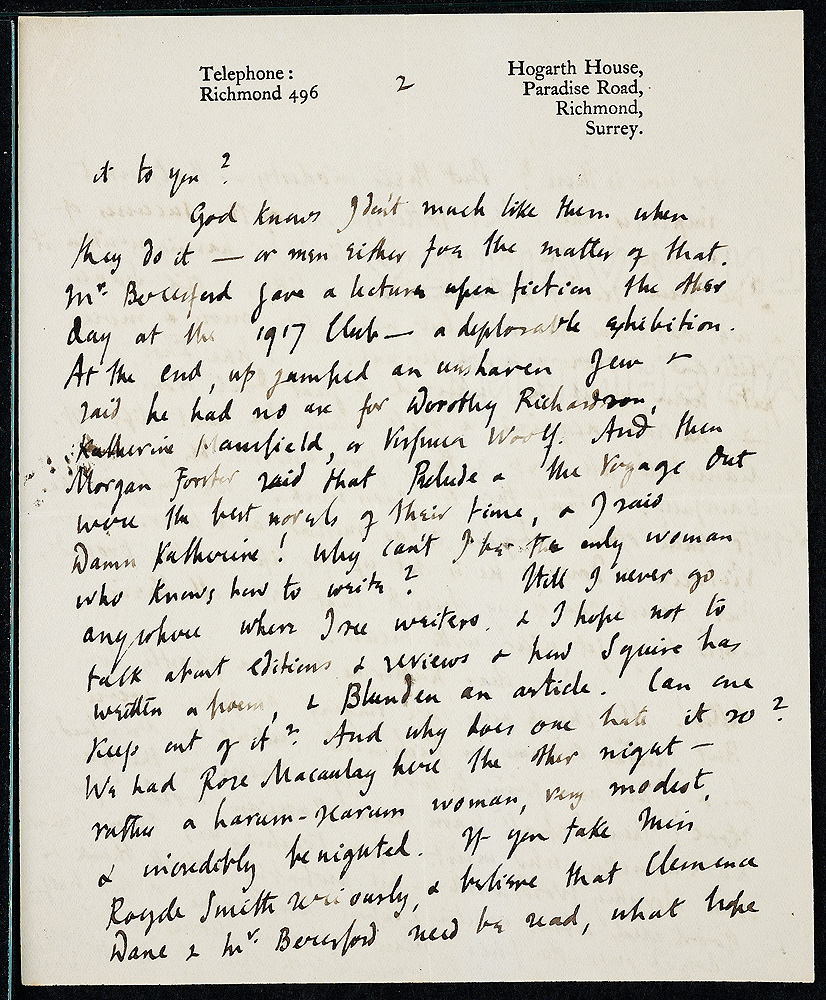 Telephone:
Richmond 496
2
Hogarth House,
Paradise Road,
Richmond,
Surrey.
it to you?
God knows I don't much like them when
they do it — or men either for the matter of that.
Mr. Beresford gave a lecture upon fiction the other
day at the 1917 Club — a deplorable exhibition.
At the end, up jumped an unshaven Jew &
said he had no use for Dorothy Richardson,
Katherine Mansfield, or Virginia Woolf. And then
Morgan Forster said that Prelude & The Voyage Out
were the best novels of their time, & I said
Damn Katherine! Why can't I be the only woman
who knows how to write? Still I never go
anywhere where I see writers. & I hope not to
talk about editions & reviews & how Squire has
written a poem, & Blunden an article. Can one
keep out of it? And why does one hate it so?
We had Rose Macaulay here the other night —
rather a harum-scarum woman, very modest,
& incredibly benighted. If you take Miss
Royde Smith seriously, & believe that Clemence
Dane & Mr. Beresford need be read, what hope